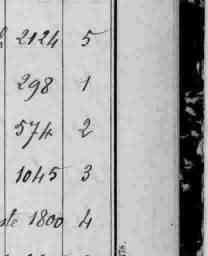 2124 5
298 1
574 2
1045 3
1800 4